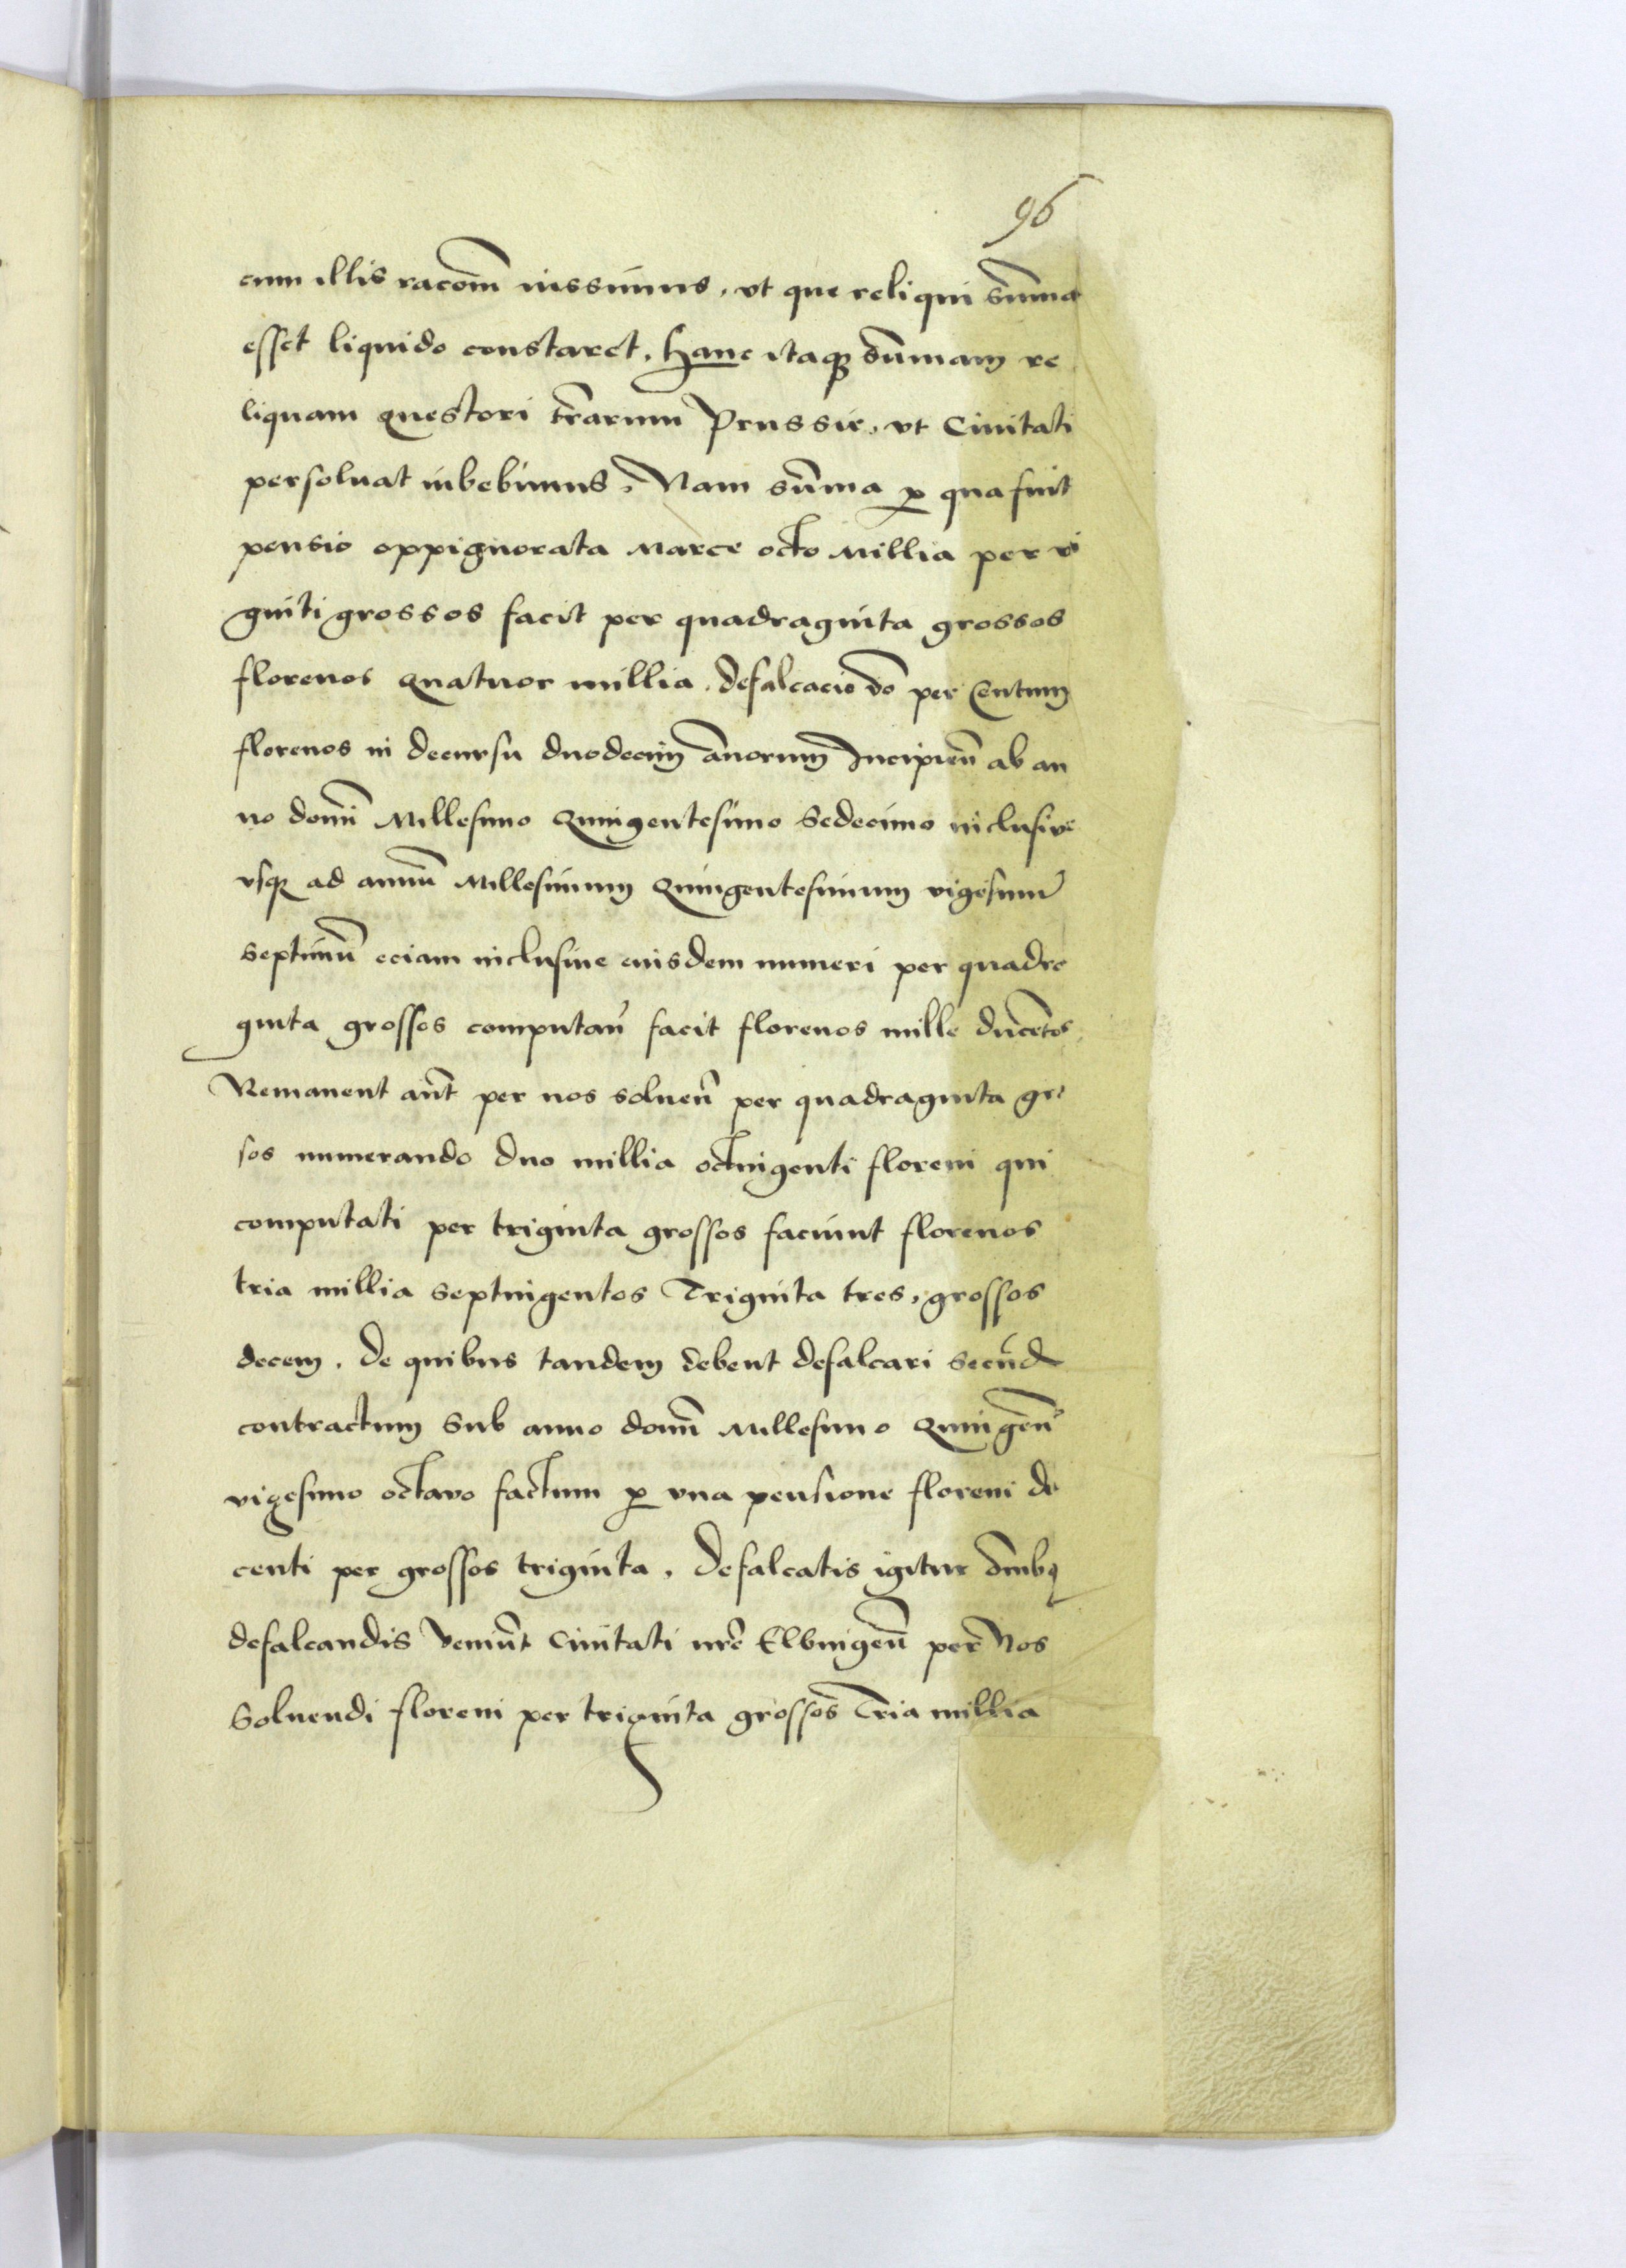 96
cum illis racōm iussimus, vt que reliqui sūma
esset liquido constaret. Hanc itaqꝫ sūmam re
liquam questori t̄rarum Prussie, vt Ciuitati
persoluat iubebimus, Nam sūma ꝓ qua fuit
pensio oppignorata Marce octo Millia per vi
ginti grossos facit per quadraginta grossos
florenos quatuor millia. defalcacio v̄o per Centum
florenos in decursu duodecim ānorum Incipieñ ab an
no domī Millesimo Quingentesimo Sedecimo inclusiue
vsqꝫ ad annū Millesimum Quingentesimum vigesimū
septimū eciam inclusiue eiusdem numeri per quadra
ginta grossos computañ facit florenos mille duceñtos
Remanent aūt per nos solueñ per quadraginta gro
sos numerando duo millia octingenti floreni qui
computati per triginta grossos faciunt florenos
tria millia septingentos Triginta tres, grossos
decem. de quibus tandem debent defalcari secūd
contractum Sub anno domī Millesimo Quingeñ
vigesimo octauo factum ꝓ vna pensione floreni du
centi per grossos triginta. Defalcatis igitur ōmibꝫ
defalcandis Veniūt Ciuitati nr̄e Elbingeñ per Nos
Soluendi floreni per triginta grossos Tria millia